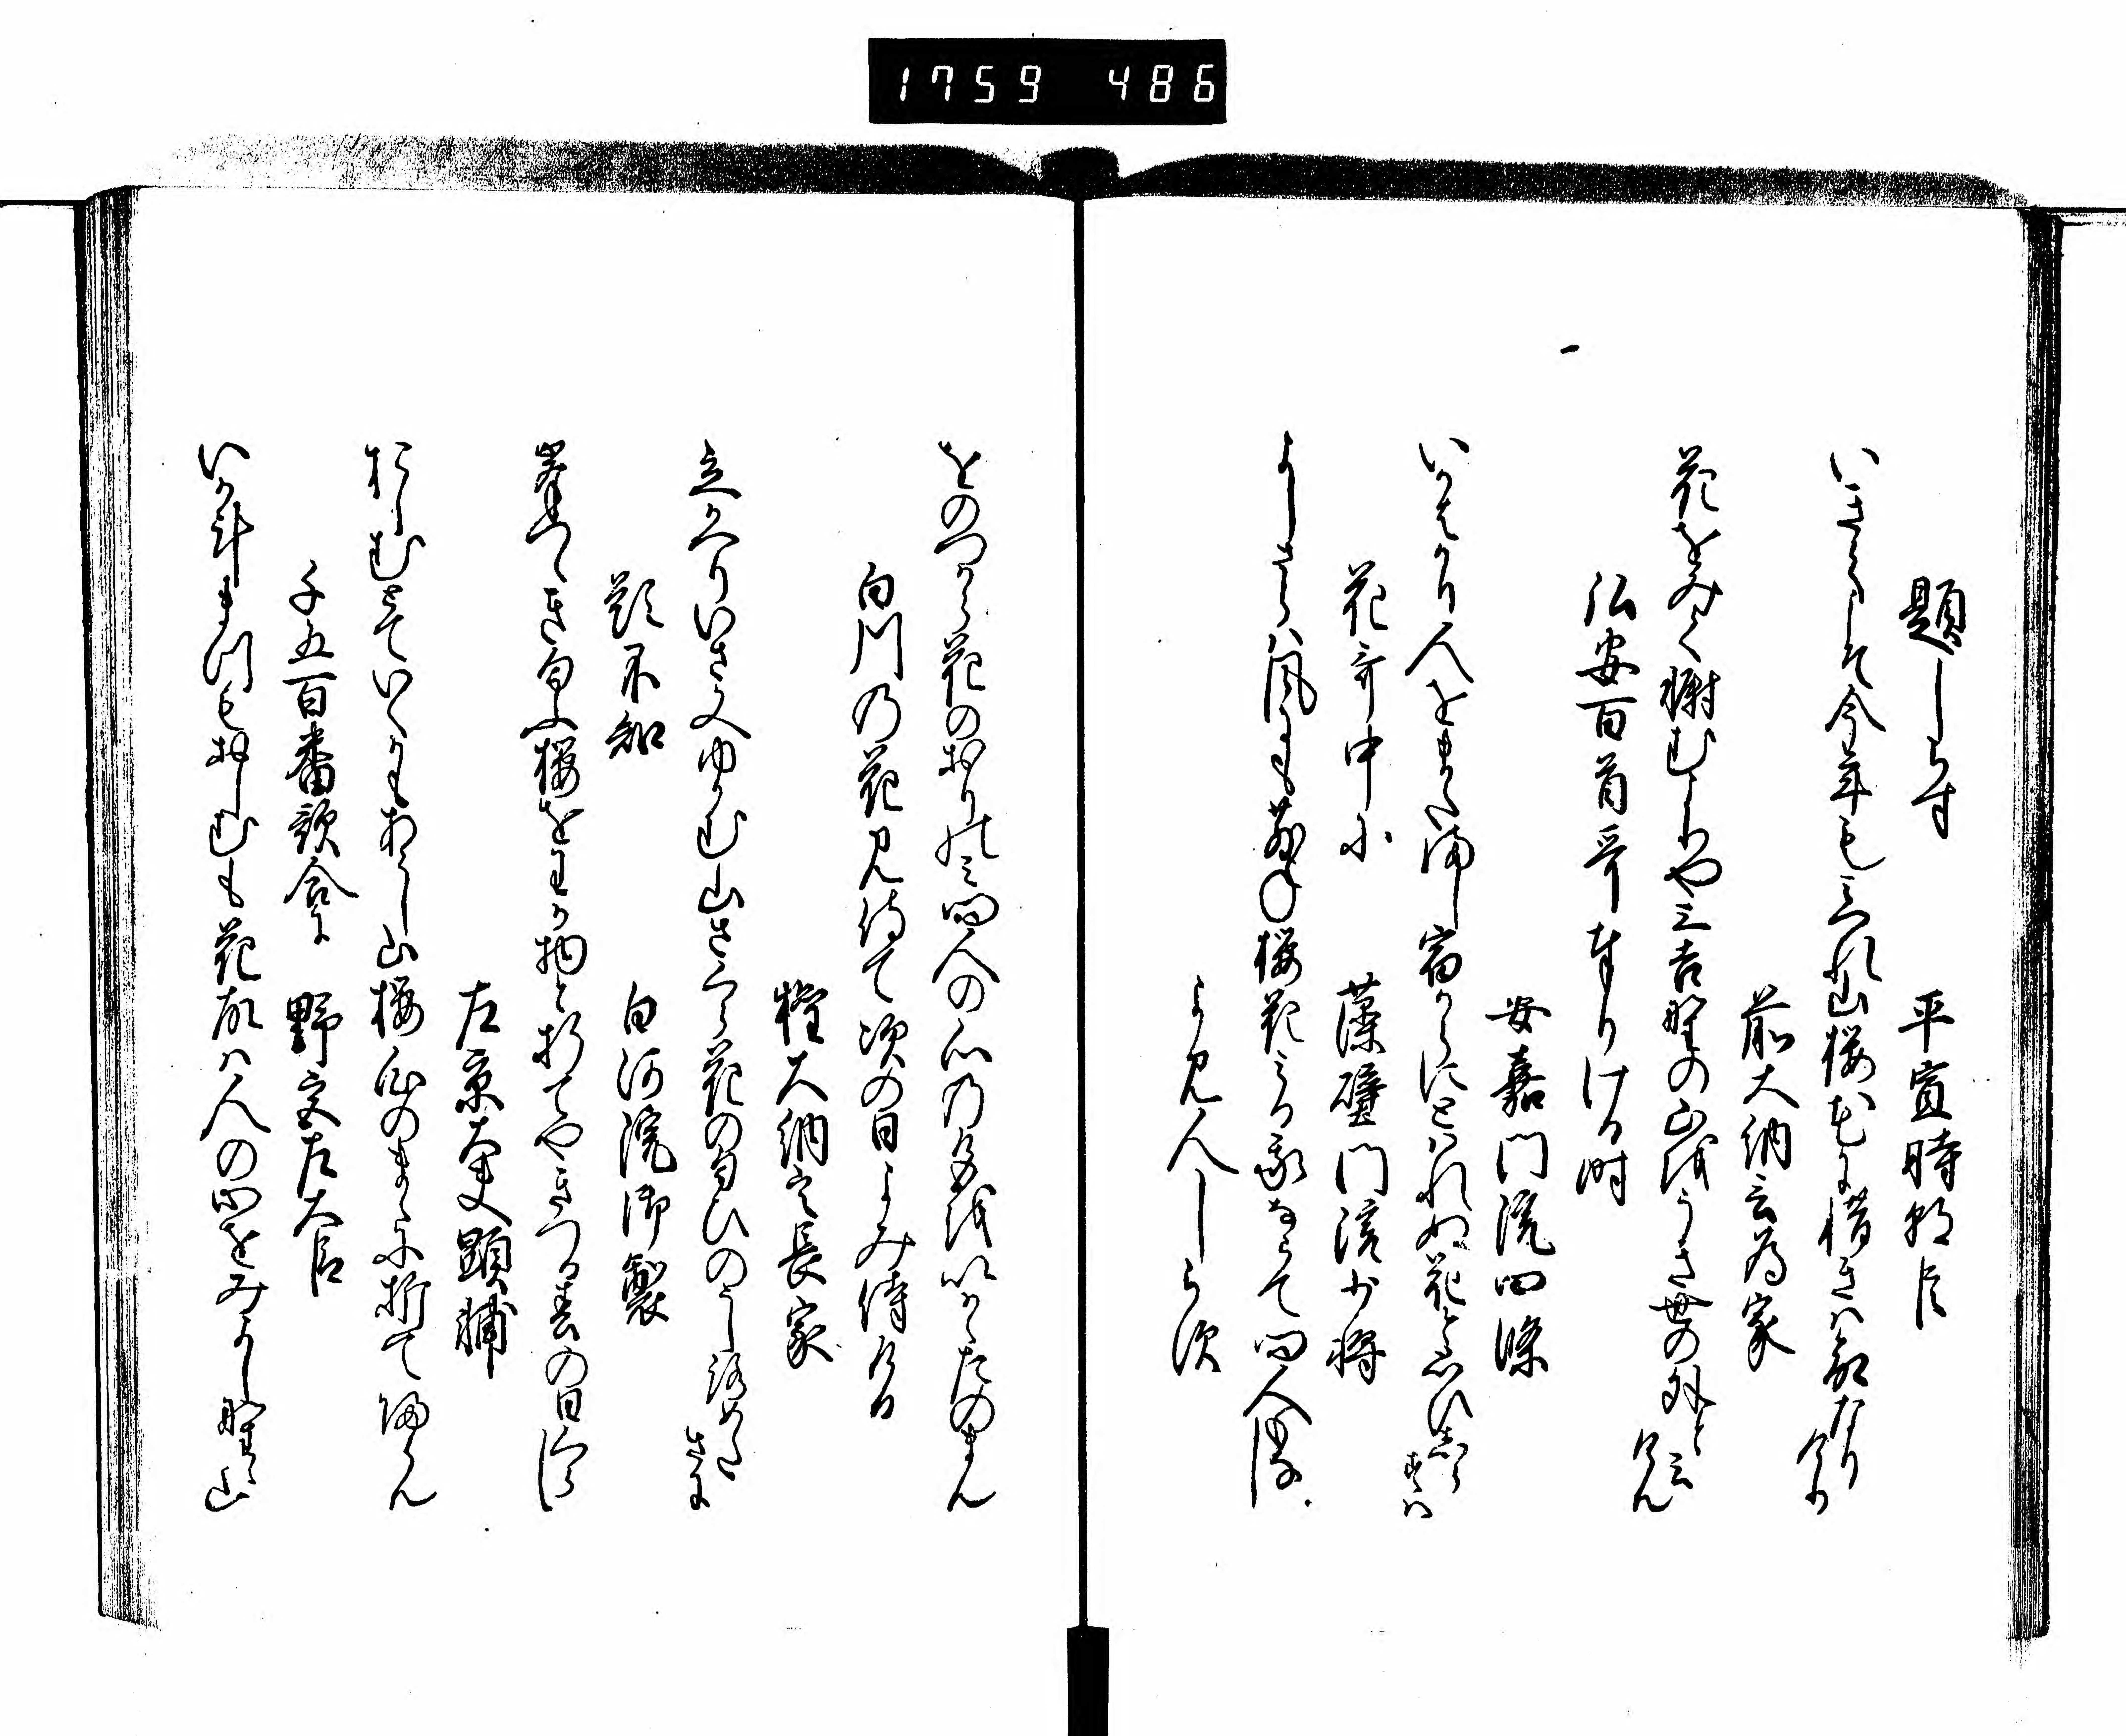 1759 486
題しらす 平宣時朝臣
いきてこそ今年もみつれ山桜花に惜きは命なり
けり
前大納言為家
花をみて慰むよりや三吉野の山をうき世の外と
云けん
弘安百首哥奉りける時
安嘉門院四條
いかはかり人をまた満し宿からにとはれぬ花と思ひしら
すは
花哥中に
藻璧門院少将
よしさらは風にも散ね桜花みる我ならて問人もなし
よみ人しらす
をのつから花のおりのみ問人の心の色をいかゝたのまん
白川の花見侍て次の日よみ侍ける
権大納言長家
立かへりいさ又ゆかむ山さくら花の匂ひのうしろめた
さに
題不知 白河院御製
峯つゝき匂ふ桜をわか物と折てやきつる春の日くらし
左京大夫顕輔
おしむとていくかもあらし山桜心のまゝに折て帰らん
千五百番歌合に 野宮左大臣
いか計まつもおしむも花故は人の心をみよし野の山